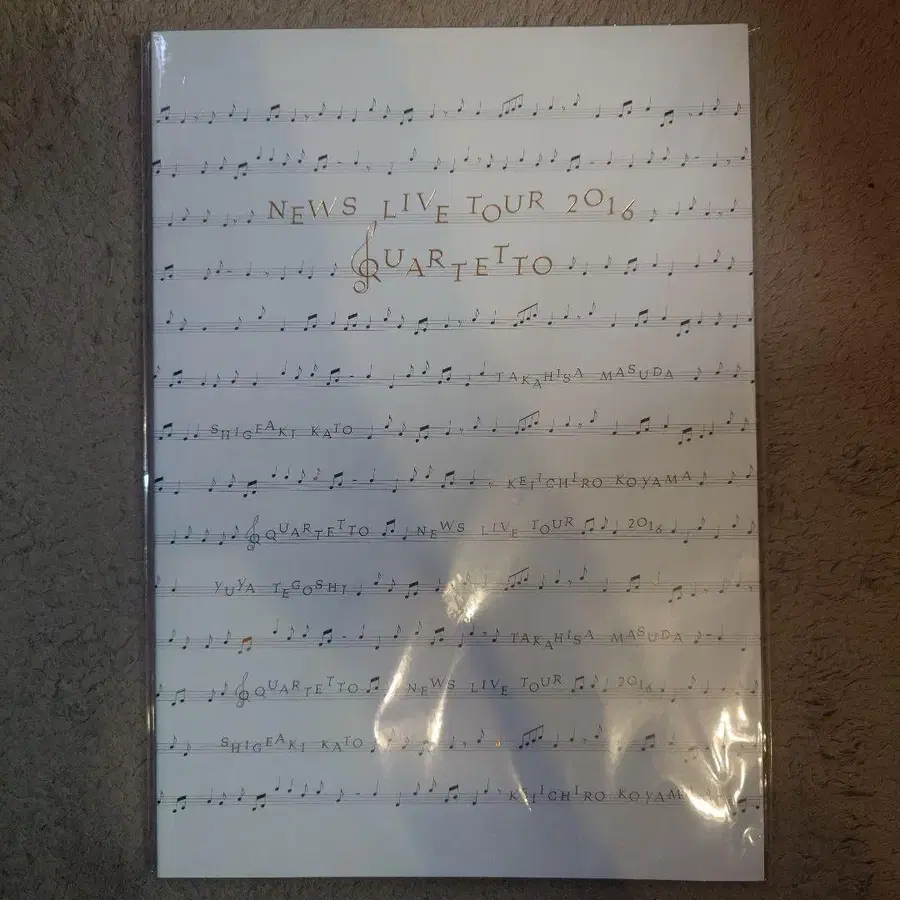 NEWS LIVE TOUR 2016
QUARTETTO
TAKAHISA MASUDA
SHIGEAKI KATO
KEIICHIRO KOYAMA
QUARTETTO NEWS LIVE TOUR 2016
YUYA TEGOSHI
TAKAHISA MASUDA
QUARTETTO NEWS LIVE TOUR 2016
SHIGEAKI KATO
KEIICHIRO KOYAMA